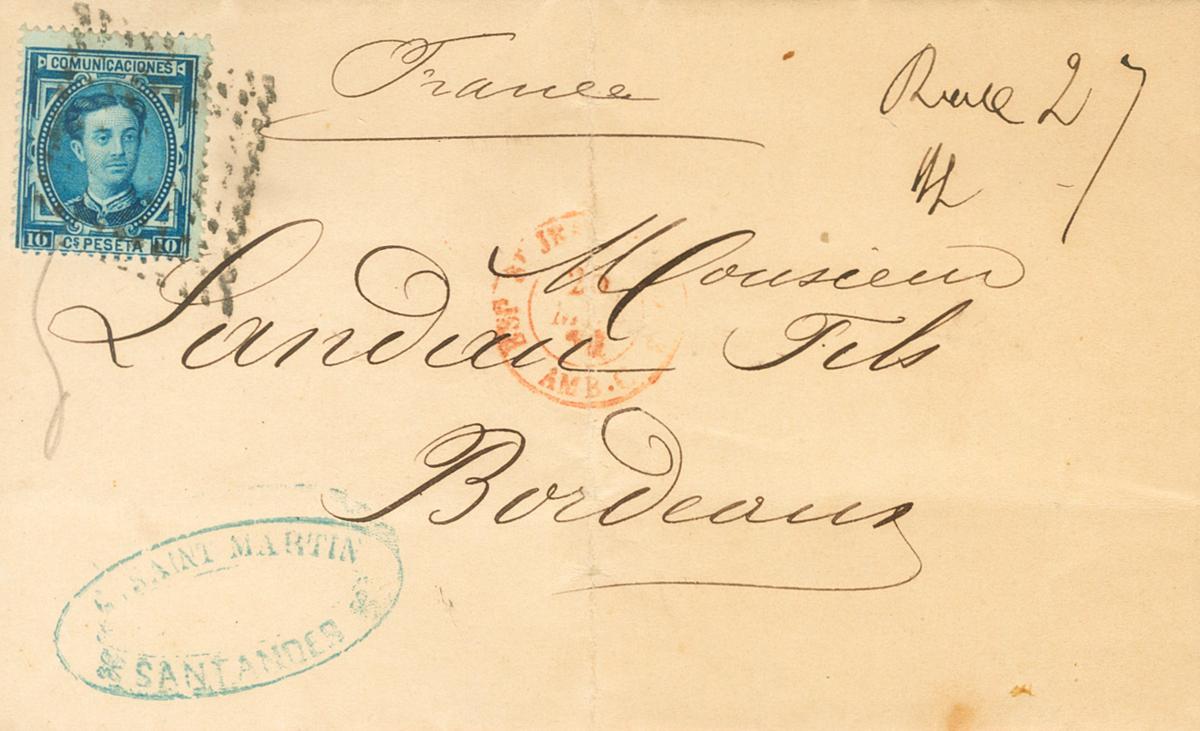 COMUNICACIONES
10 Cs PESETA 10
France
27
Monsieur
Landau Fils
Bordeaux
ESP. ST JE
26
AMB.
SAINT MARTIN
SANTANDER